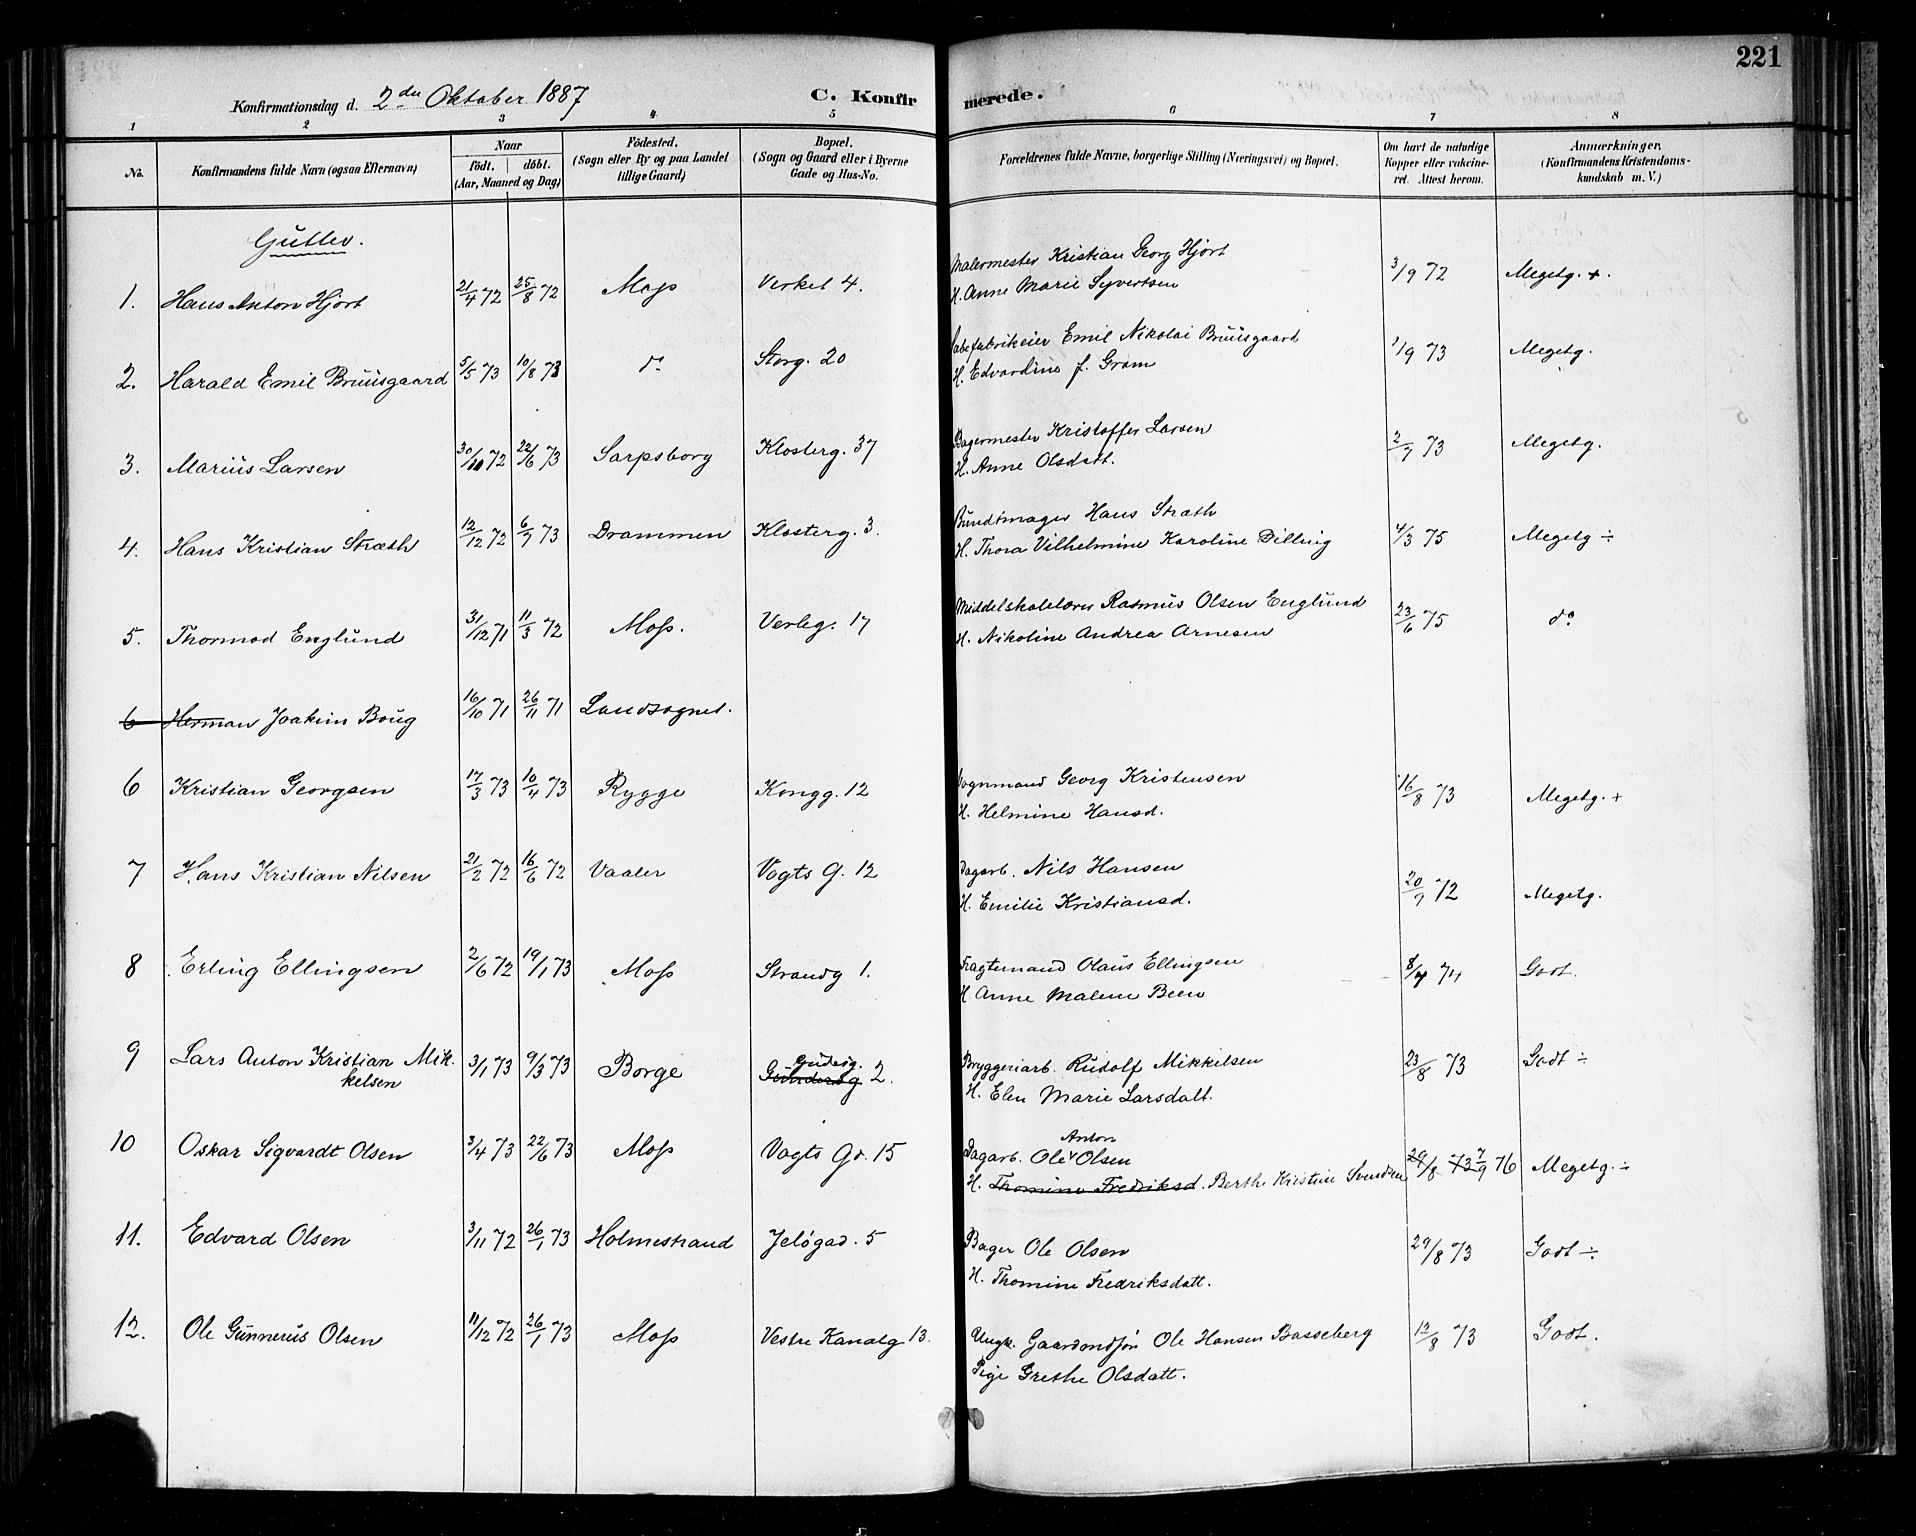 221
Konfirmationsdag d. 2den Oktober 1887 C. Konfirmerede.
1 2 3 4 5 6 7 8
No. Konfirmandens fulde Navn (ogsaa Efternavn) Naar födt. döbt. (Aar, Maaned og Dag) Födested. (Sogn eller By og paa Landet tillige Gaard) Bopæl. (Sogn og Gaard eller i Byerne Gade og Hus-No. Forældrenes fulde Navne, borgerlige Stilling (Næringsvei) og Bopæl. Om havt de naturlige Kopper eller vakcineret. Attest herom. Anmærkninger, (Konfirmandens Kristendomskundskab m. V.)
Gutter.
1. Hans Anton Hjort 21/4 72 25/8 72 Moss Verket 4. Malermester Kristian Georg Hjort 3/9 72 Megetg. +.
H. Anne Marie Syvertsen
2. Harald Emil Bruusgaard 5/5 73 10/8 73 do Storg. 20 Emil Nikolai Bruusgaard 1/9 73 Megetg.
H. Edvardine f. Gram
3. Marius Larsen 30/10 72 22/6 73 Sarpsborg Klosterg. 37 Bagermester Kristoffer Larsen 2/7 73 Megetg.
H. Anne Olsdatt.
4. Hans Kristian Stræth 12/12 72 6/7 73 Drammen Klosterg. 3. Bundtmager Hans Stræth 4/3 75 Megetg ÷
H. Thora Vilhelmine Karoline Dilling
5. Thormod Englund 31/12 71 11/3 72 Moss. Verleg. 17 Middelskolelærer Rasmus Olsen Englund 23/6 75 do
H. Nikoline Andrea Arnesen
6 Herman Joakim Boug 16/10 71 26/11 71 Landsognet.
6 Kristian Georgsen 17/3 73 10/4 73 Rygge Kongg. 12 Vognmand Georg Kristensen 16/8 73 Megetg. +
H. Helmine Hansd.
7 Hans Kristian Nilsen 21/2 72 16/6 72 Vaaler Vogts G. 12 Dagarb. Nils Hansen 20/7 72 Megetg.
H. Emilie Kristiansd.
8 Erling Ellingsen 2/6 72 19/1 73 Moss Strandg 1. Fragtemand Olaus Ellingsen 8/7 74 Godt.
H. Anne Malene Been
9 Lars Anton Kristian Mikkelsen 3/1 73 9/3 73 Borge Gudesg. 2. Bryggeriarb. Rudolf Mikkelsen 23/8 73 Godt ÷
H. Elen Marie Larsdatt.
10 Oskar Sigvardt Olsen 3/4 73 22/6 73 Moss Vogts Gd. 15 Dagarb. Ole Anton Olsen 29/8 73 7/9 76 Megetg. ÷
H. Thomine Fredriksd. Berthe Kristine Svendsen
11. Edvard Olsen 3/11 72 26/1 73 Holmestrand Jeløgad. 5 Bager Ole Olsen 29/8 73 Godt ÷
H. Thomine Fredriksdatt.
12. Ole Gunnerus Olsen 11/12 72 26/1 73 Moss Vestre Kanalg 13. Ungk. Gaardmdsøn Ole Hansen Basseberg 13/8 73 Godt.
Pige Grethe Olsdatt.